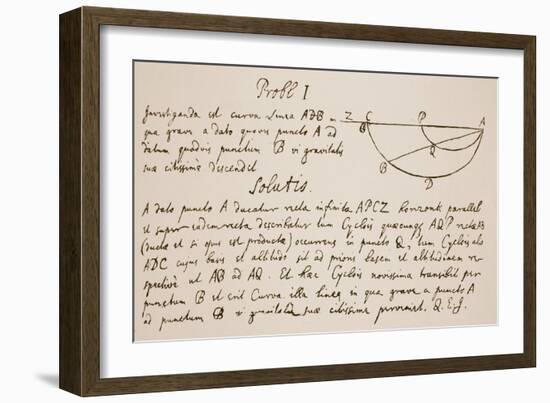 Probl I
Investiganda est curva Linea ADB in
qua grave a dato quovis puncto A ad
datum quodvis punctum B vi gravitatis
suæ citissime descendet
Z C P A
B Q
B
D
Solutio.
A dato puncto A ducatur recta infinita APCZ horizonti parallela
et super eadem recta describatur tum Cyclois quæcunque AQP rectæ AB
(ducta et si opus est producta) occurrens in puncto Q, tum Cyclois alia
ADC cujus basis et altitudo sit ad prioris basem et altitudinem re-
spective ut AB ad AQ. Et hæc Cyclois novissima transibit per
punctum B et erit Curva illa linea in qua grave a puncto A
ad punctum B vi gravitatis suæ citissime perveniet. Q.E.I.